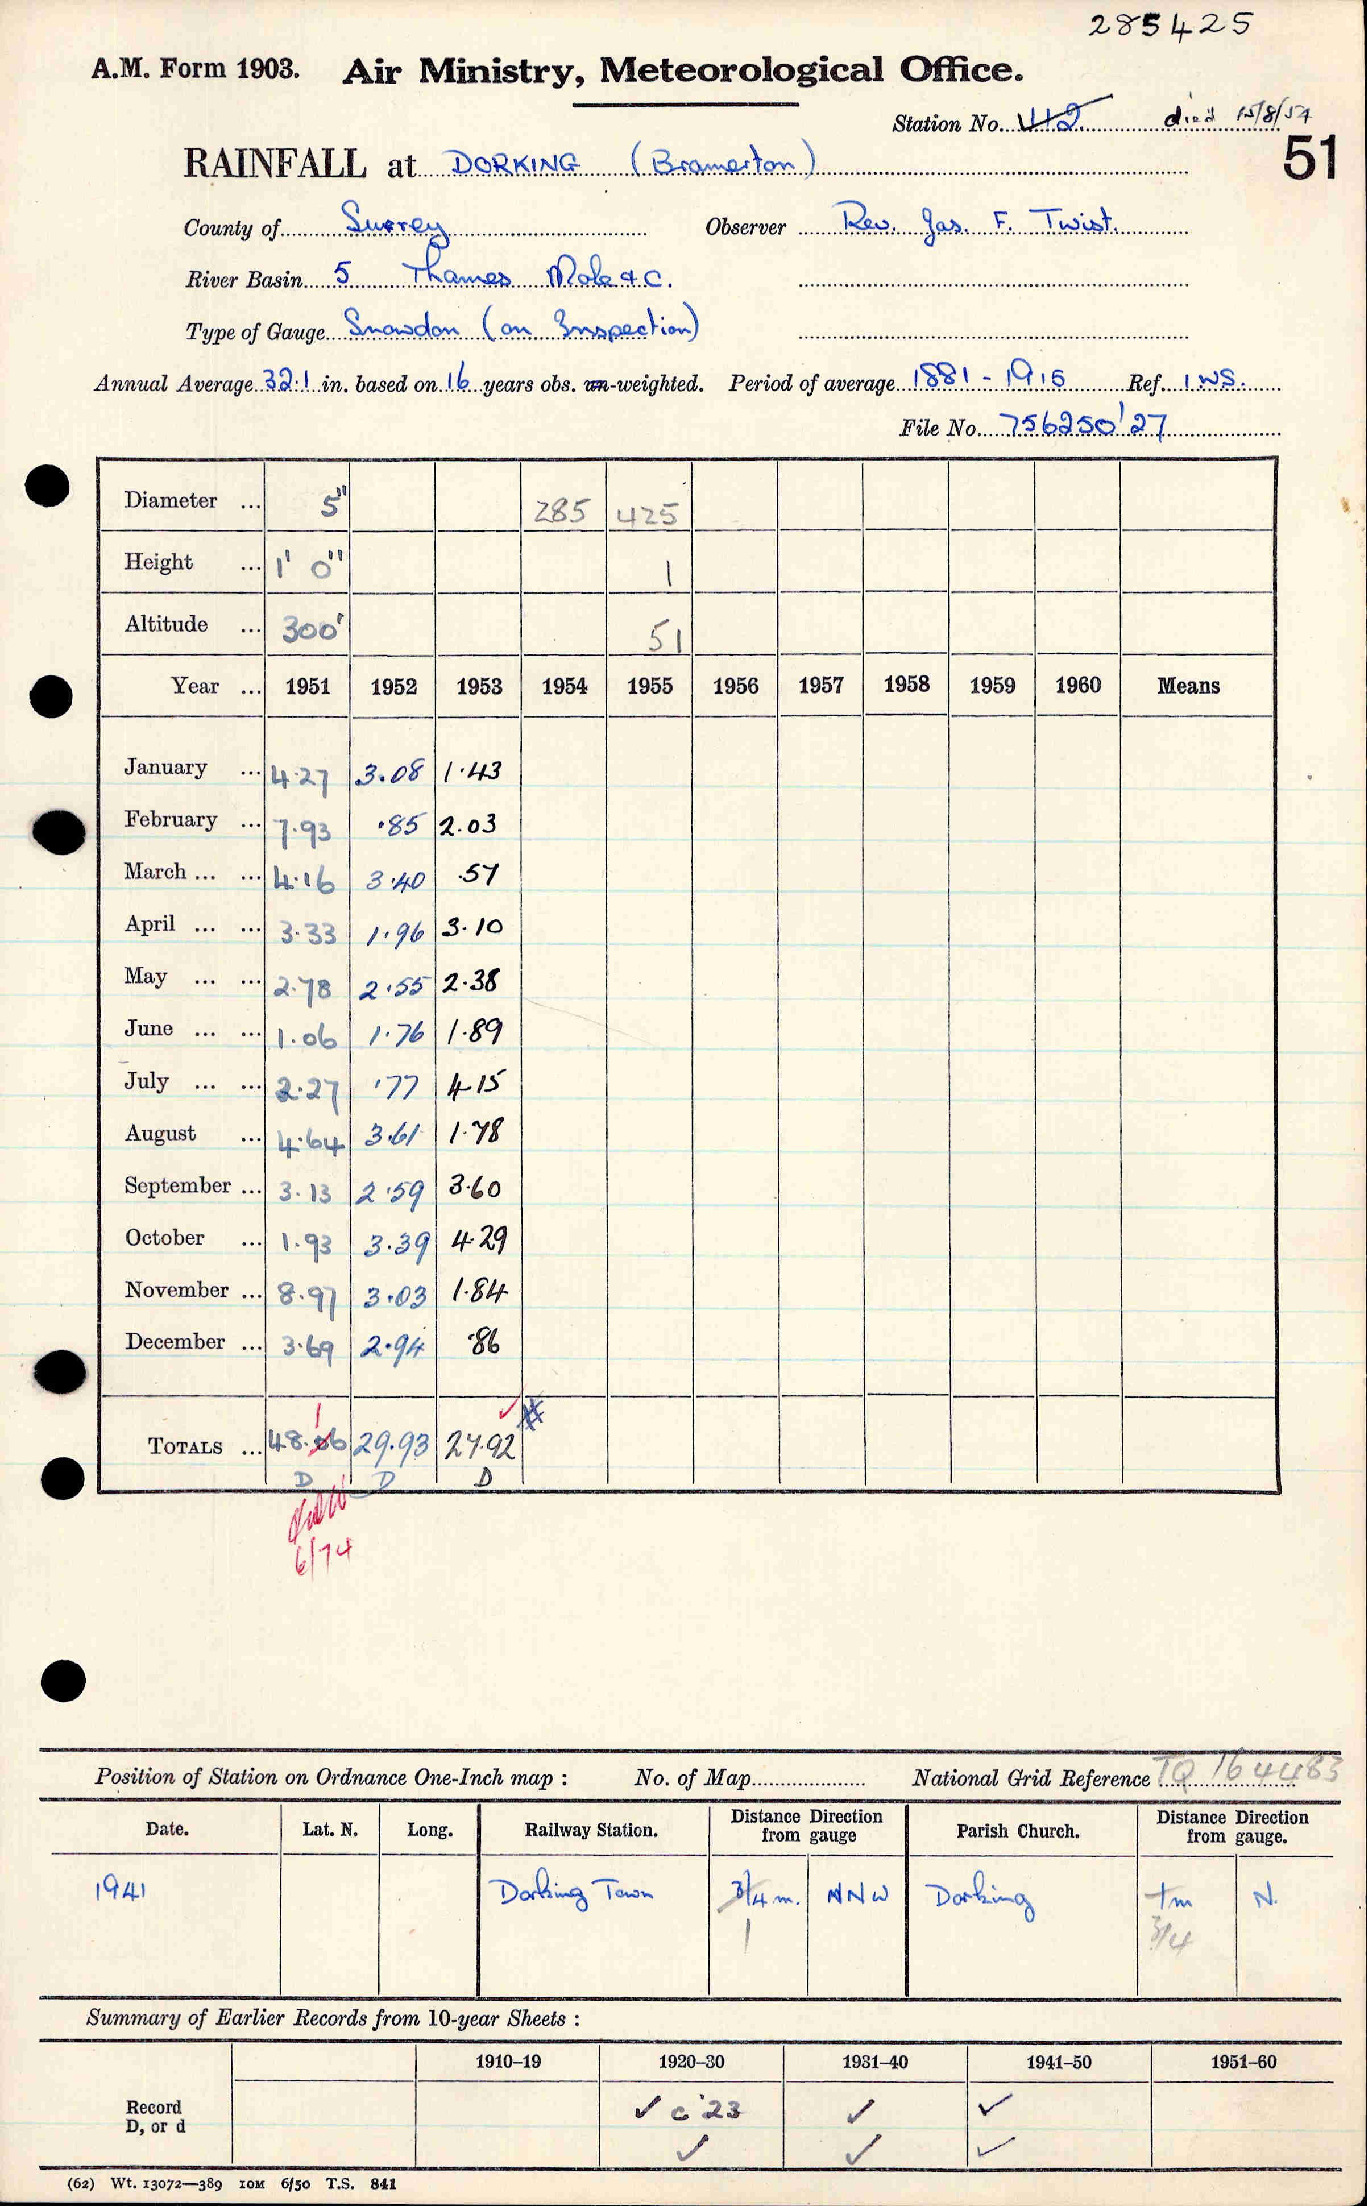 285425
A.M. Form 1903. Air Ministry, Meteorological Office.
Station No. 112 died 15/8/54
51
RAINFALL at DORKING (Bramerton)
County of Surrey Observer Rev. Jas. F. Twist.
River Basin 5 Thames Mole &c.
Type of Gauge Snowdon (on Inspection)
Annual Average 32.1 in. based on 16 years obs. un-weighted. Period of average 1881 - 1915 Ref. I WS.
File No. 756250/27
Diameter ... 5" 285 425
Height ... 1' 0" 1
Altitude ... 300' 51
Year ... 1951 1952 1953 1954 1955 1956 1957 1958 1959 1960 Means
January ... 4.27 3.08 1.43
February ... 7.93 .85 2.03
March ... ... 4.16 3.40 .57
April ... ... 3.33 1.96 3.10
May ... ... 2.78 2.55 2.38
June ... ... 1.06 1.76 1.89
July ... ... 2.27 .77 4.15
August ... 4.64 3.61 1.78
September ... 3.13 2.59 3.60
October ... 1.93 3.39 4.29
November ... 8.97 3.03 1.84
December ... 3.69 2.94 .86
1
TOTALS ... 48.06 29.93 27.92
D D D
6/74
Position of Station on Ordnance One-Inch map : No. of Map National Grid Reference TQ 164483
Date. Lat. N. Long. Railway Station. Distance Direction from gauge Parish Church. Distance Direction from gauge.
1941 Dorking Town 3/4 m. NNW Dorking 1 m N.
1 3/4
Summary of Earlier Records from 10-year Sheets :
1910–19 1920–30 1931–40 1941–50 1951–60
Record ✓ c '23 ✓ ✓
D, or d ✓ ✓ ✓
(62) Wt. 13072—389 10M 6/50 T.S. 841